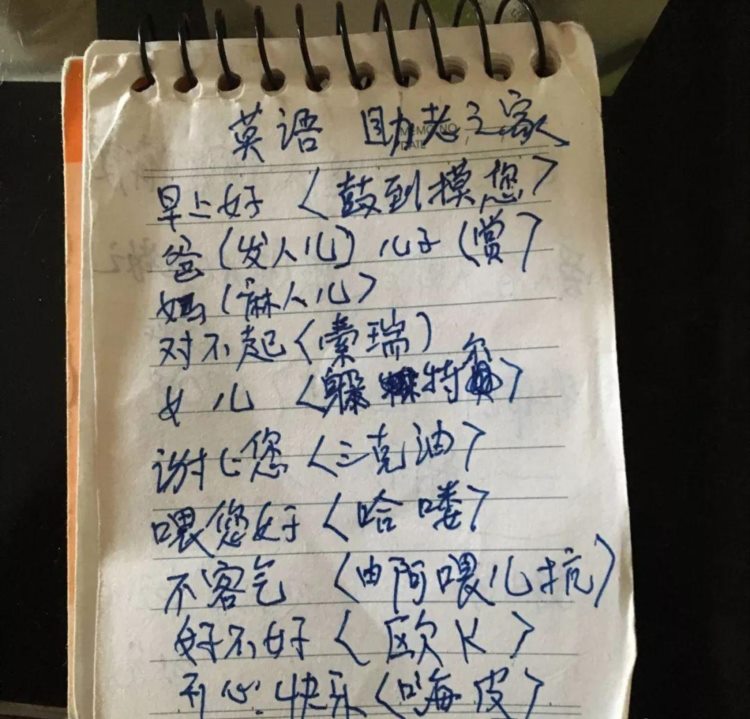 英语 助老之家
MEMO NO.
DATE / /
早上好〈鼓到摸您〉
爸(发人儿)儿子(赏〉
妈(麻人儿〉
对不起〈索瑞)
女儿〈躲特尔〉
谢七您〈三克油〉
喂您好〈哈喽〉
不客气〈由阿喂儿抗)
好不好〈欧K〉
开心快乐〈嗨皮〉